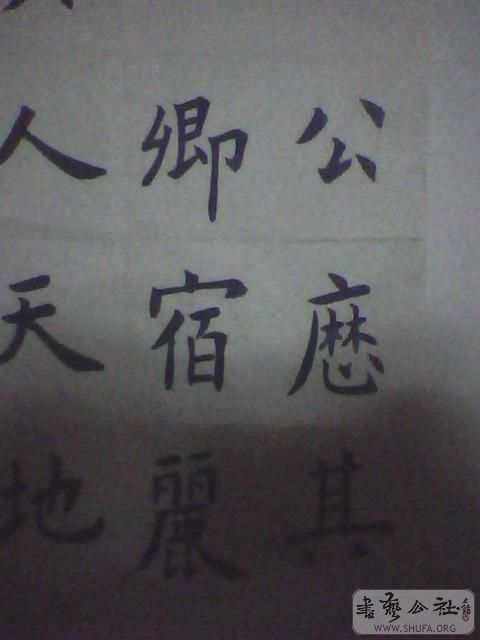 公其
卿宿麗
人天地
書藝公社
WWW.SHUFA.ORG